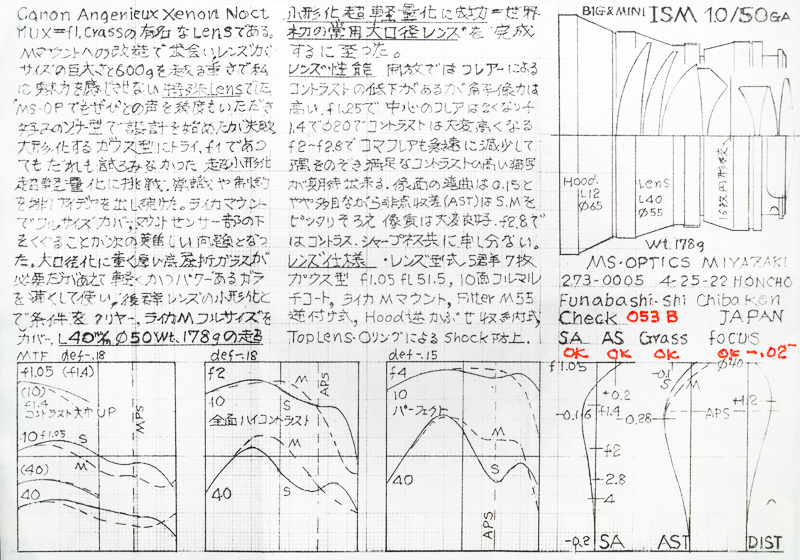 Canon Angenieux Xenon Noct
ILUX=f1.Crassの有名なLensである。
Mマウントへの改造で出会いレンズが
サイズの巨大さと600gを越る重さで私
に魅力を感じさせない特殊Lensでした
MS-OPでもぜひとの声を幾度もいただき
ゾナー型で設計を始めたが失敗
大形化するガウス型にトライ、f1であっ
てもだれも試ろみなかった 超小形化
超軽量化に挑戦、常識や
アイデアを出し続けた。ライカマウント
でフルサイズカバー、マウントセンサー
をくぐることが次の難しい問題となっ
た。大口径化に重く厚い高屈折ガラスが
必要だがあえて軽くかつパワーあるガラ
を薄くして使い、後群レンズの小形化と
で条件をクリヤー。ライカMフルサイズを
カバー、L40% Ø50 Wt.178gの超
小形化超軽量化に成功=世界
初の常用大口径レンズを完成
するに至った。
レンズ性能 開放ではフレアーによる
コントラストの低下があるが解像力は
高い、f1.25で中心のフレアはなくなりf
1.4でØ20でコントラストは大変高くなる
f2-f2.8でコマフレアも急速に減少して
隅をのぞき満足なコントラストの高い描写
が期待出来る。像面の湾曲は0.15と
やや多目ながら非点収差(AST)はS.Mを
ピッタリそろえ 像質は大変良好。f2.8で
はコントラス、シャープネス共に申し分ない。
レンズ仕様・レンズ型式 5群7枚
ガウス型 f1.05 fl 51.5, 10面コルマル
チコート, ライカMマウント, Filter M55
逆付け式, Hood逆かぶせ収納式,
TopLens・OリングによるShock防止。
BIG&MINI ISM 1.0/50 GA
Hood
L12
Ø65
Lens
L40
Ø55
16枚円形絞
Wt.178g
MS-OPTICS MIYAZAKI
273-0005 4-25-22 HONCHO
Funabashi-Shi Chiba Ken
Check 053B JAPAN
SA AS Grass focus
OK OK OK OK -.02
MTF def-.18
f1.05 (f1.4)
(10)
f1.4
コントラスト大巾UP
10 f1.05
S
M
(40)
40
MPS
def-.18
f2
10
M
S
APS
全面ハイコントラスト
M
S
40
def-.15
f4
10
パーフェクト
M
S
40
APS
f1.05
+0.2
-0.16
f1.4
f2
2.8
4
-0.2
SA
-0.1
S
M
-0.28
APS
AST
Ø40
+1.2
DIST